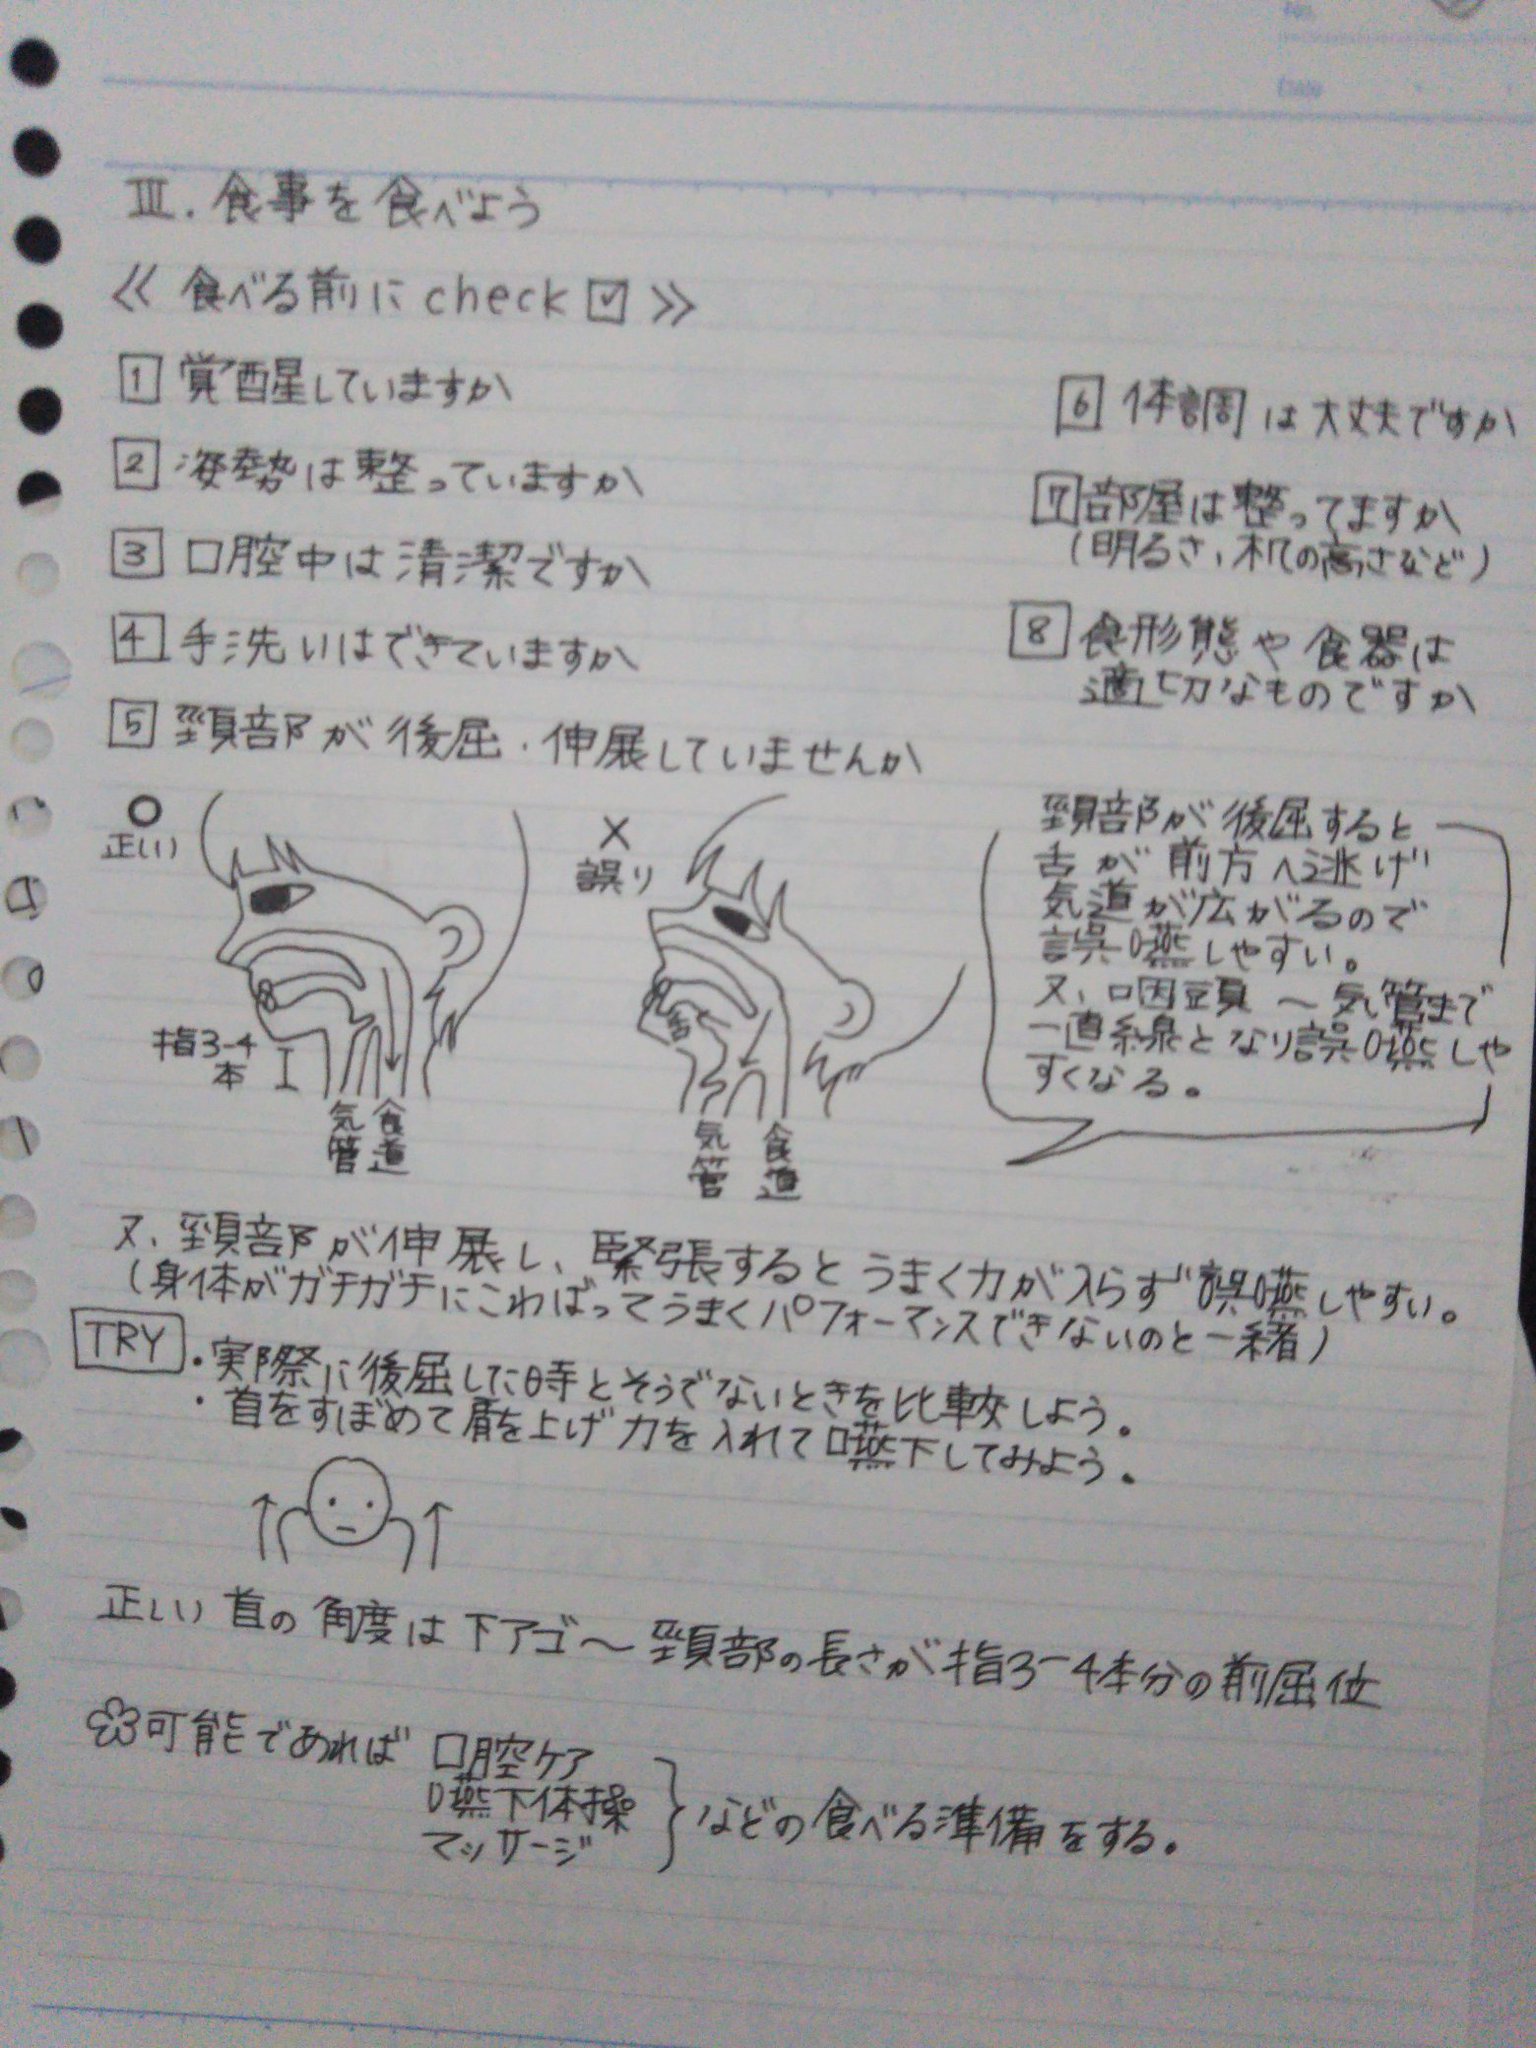 III. 食事を食べよう
≪ 食べる前に check ☑ ≫
1 覚醒していますか
2 姿勢は整っていますか
3 口腔中は清潔ですか
4 手洗いはできていますか
5 頸部が後屈・伸展していませんか
6 体調は大丈夫ですか
7 部屋は整ってますか
(明るさ、机の高さなど)
8 食形態や食器は
適切なものですか
○
正しい
指3-4
本
気管
食道
×
誤り
舌
気管
食道
頸部が後屈すると
舌が前方へ逃げ
気道が広がるので
誤嚥しやすい。
又、咽頭〜気管まで
一直線となり誤嚥しや
すくなる。
又、頸部が伸展し、緊張するとうまく力が入らず誤嚥しやすい。
(身体がガチガチにこわばってうまくパフォーマンスできないのと一緒)
TRY ・実際に後屈した時とそうでないときを比較しよう。
・首をすぼめて肩を上げ力を入れて嚥下してみよう。
正しい首の角度は下アゴ〜頸部の長さが指3-4本分の前屈位
可能であれば 口腔ケア
嚥下体操
マッサージ
などの食べる準備をする。